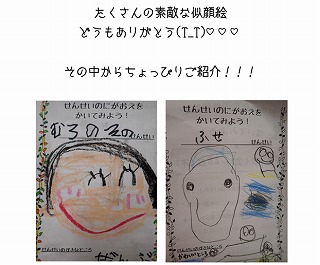 たくさんの素敵な似顔絵
どうもありがとう(T_T)♡♡♡
その中からちょっぴりご紹介！！！
せんせいのにがおえを
かいてみよう！
むろのその
せんせい
せんせいのすきなところ
せんせいのにがおえを
かいてみよう！
ふせ
せんせい
せんせいのすきなところ
かわいいところ